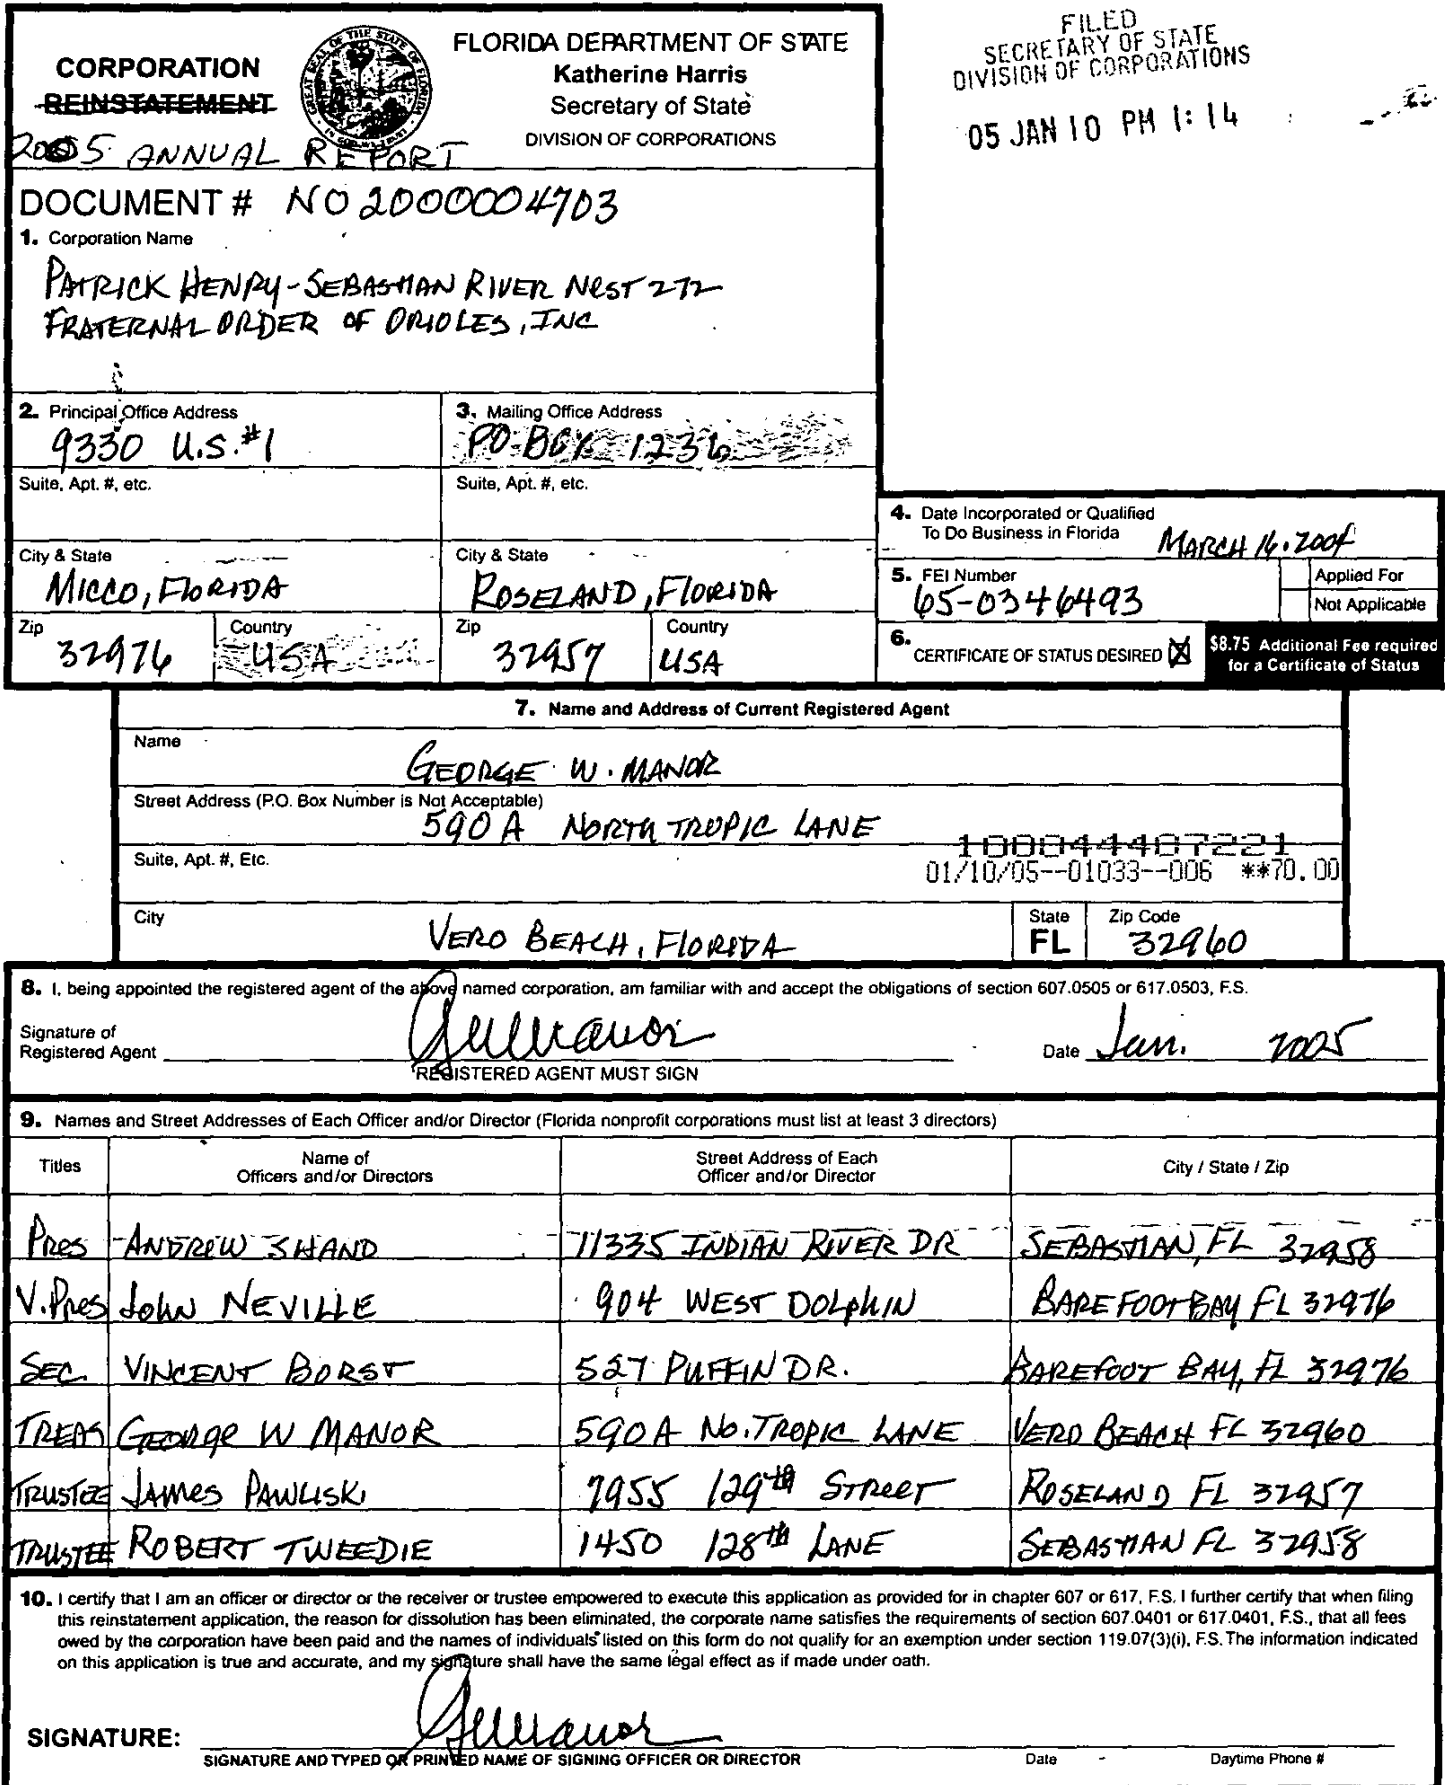 FILED
SECRETARY OF STATE
DIVISION OF CORPORATIONS
05 JAN 10 PM 1:14
CORPORATION
REINSTATEMENT
2005 ANNUAL REPORT
FLORIDA DEPARTMENT OF STATE
Katherine Harris
Secretary of State
DIVISION OF CORPORATIONS
DOCUMENT # NO2000004703
1. Corporation Name
PATRICK HENRY-SEBASTIAN RIVER NEST 272
FRATERNAL ORDER OF ORIOLES, INC
2. Principal Office Address
9330 U.S.#1
3. Mailing Office Address
PO BOX 1236
Suite, Apt. #, etc.
Suite, Apt. #, etc.
City & State
MICCO, FLORIDA
City & State
ROSELAND, FLORIDA
Zip
32976
Country
USA
Zip
32957
Country
USA
4. Date Incorporated or Qualified
To Do Business in Florida
MARCH 16. 2004
5. FEI Number
65-0346493
Applied For
Not Applicable
6. CERTIFICATE OF STATUS DESIRED
$8.75 Additional Fee required
for a Certificate of Status
7. Name and Address of Current Registered Agent
Name
GEORGE W. MANOR
Street Address (P.O. Box Number is Not Acceptable)
590 A NORTH TROPIC LANE
Suite, Apt. #, Etc.
100044407221
01/10/05--01033--006 **70.00
City
VERO BEACH, FLORIDA
State
FL
Zip Code
32960
8. I, being appointed the registered agent of the above named corporation, am familiar with and accept the obligations of section 607.0505 or 617.0503, F.S.
Signature of
Registered Agent
GWManor
Date Jan. 2005
REGISTERED AGENT MUST SIGN
9. Names and Street Addresses of Each Officer and/or Director (Florida nonprofit corporations must list at least 3 directors)
Titles
Name of
Officers and/or Directors
Street Address of Each
Officer and/or Director
City / State / Zip
PRES ANDREW SHAND 11335 INDIAN RIVER DR SEBASTIAN, FL 32958
V.PRES JOHN NEVILLE 904 WEST DOLPHIN BAREFOOT BAY FL 32976
SEC. VINCENT BORST 527 PUFFIN DR. BAREFOOT BAY, FL 32976
TREAS GEORGE W MANOR 590A NO. TROPIC LANE VERO BEACH FL 32960
TRUSTEE JAMES PAWLISKI 7955 129th STREET ROSELAND FL 32957
TRUSTEE ROBERT TWEEDIE 1450 128th LANE SEBASTIAN FL 32958
10. I certify that I am an officer or director or the receiver or trustee empowered to execute this application as provided for in chapter 607 or 617, F.S. I further certify that when filing
this reinstatement application, the reason for dissolution has been eliminated, the corporate name satisfies the requirements of section 607.0401 or 617.0401, F.S., that all fees
owed by the corporation have been paid and the names of individuals listed on this form do not qualify for an exemption under section 119.07(3)(i), F.S. The information indicated
on this application is true and accurate, and my signature shall have the same legal effect as if made under oath.
SIGNATURE: GWManor
SIGNATURE AND TYPED OR PRINTED NAME OF SIGNING OFFICER OR DIRECTOR
Date
Daytime Phone #